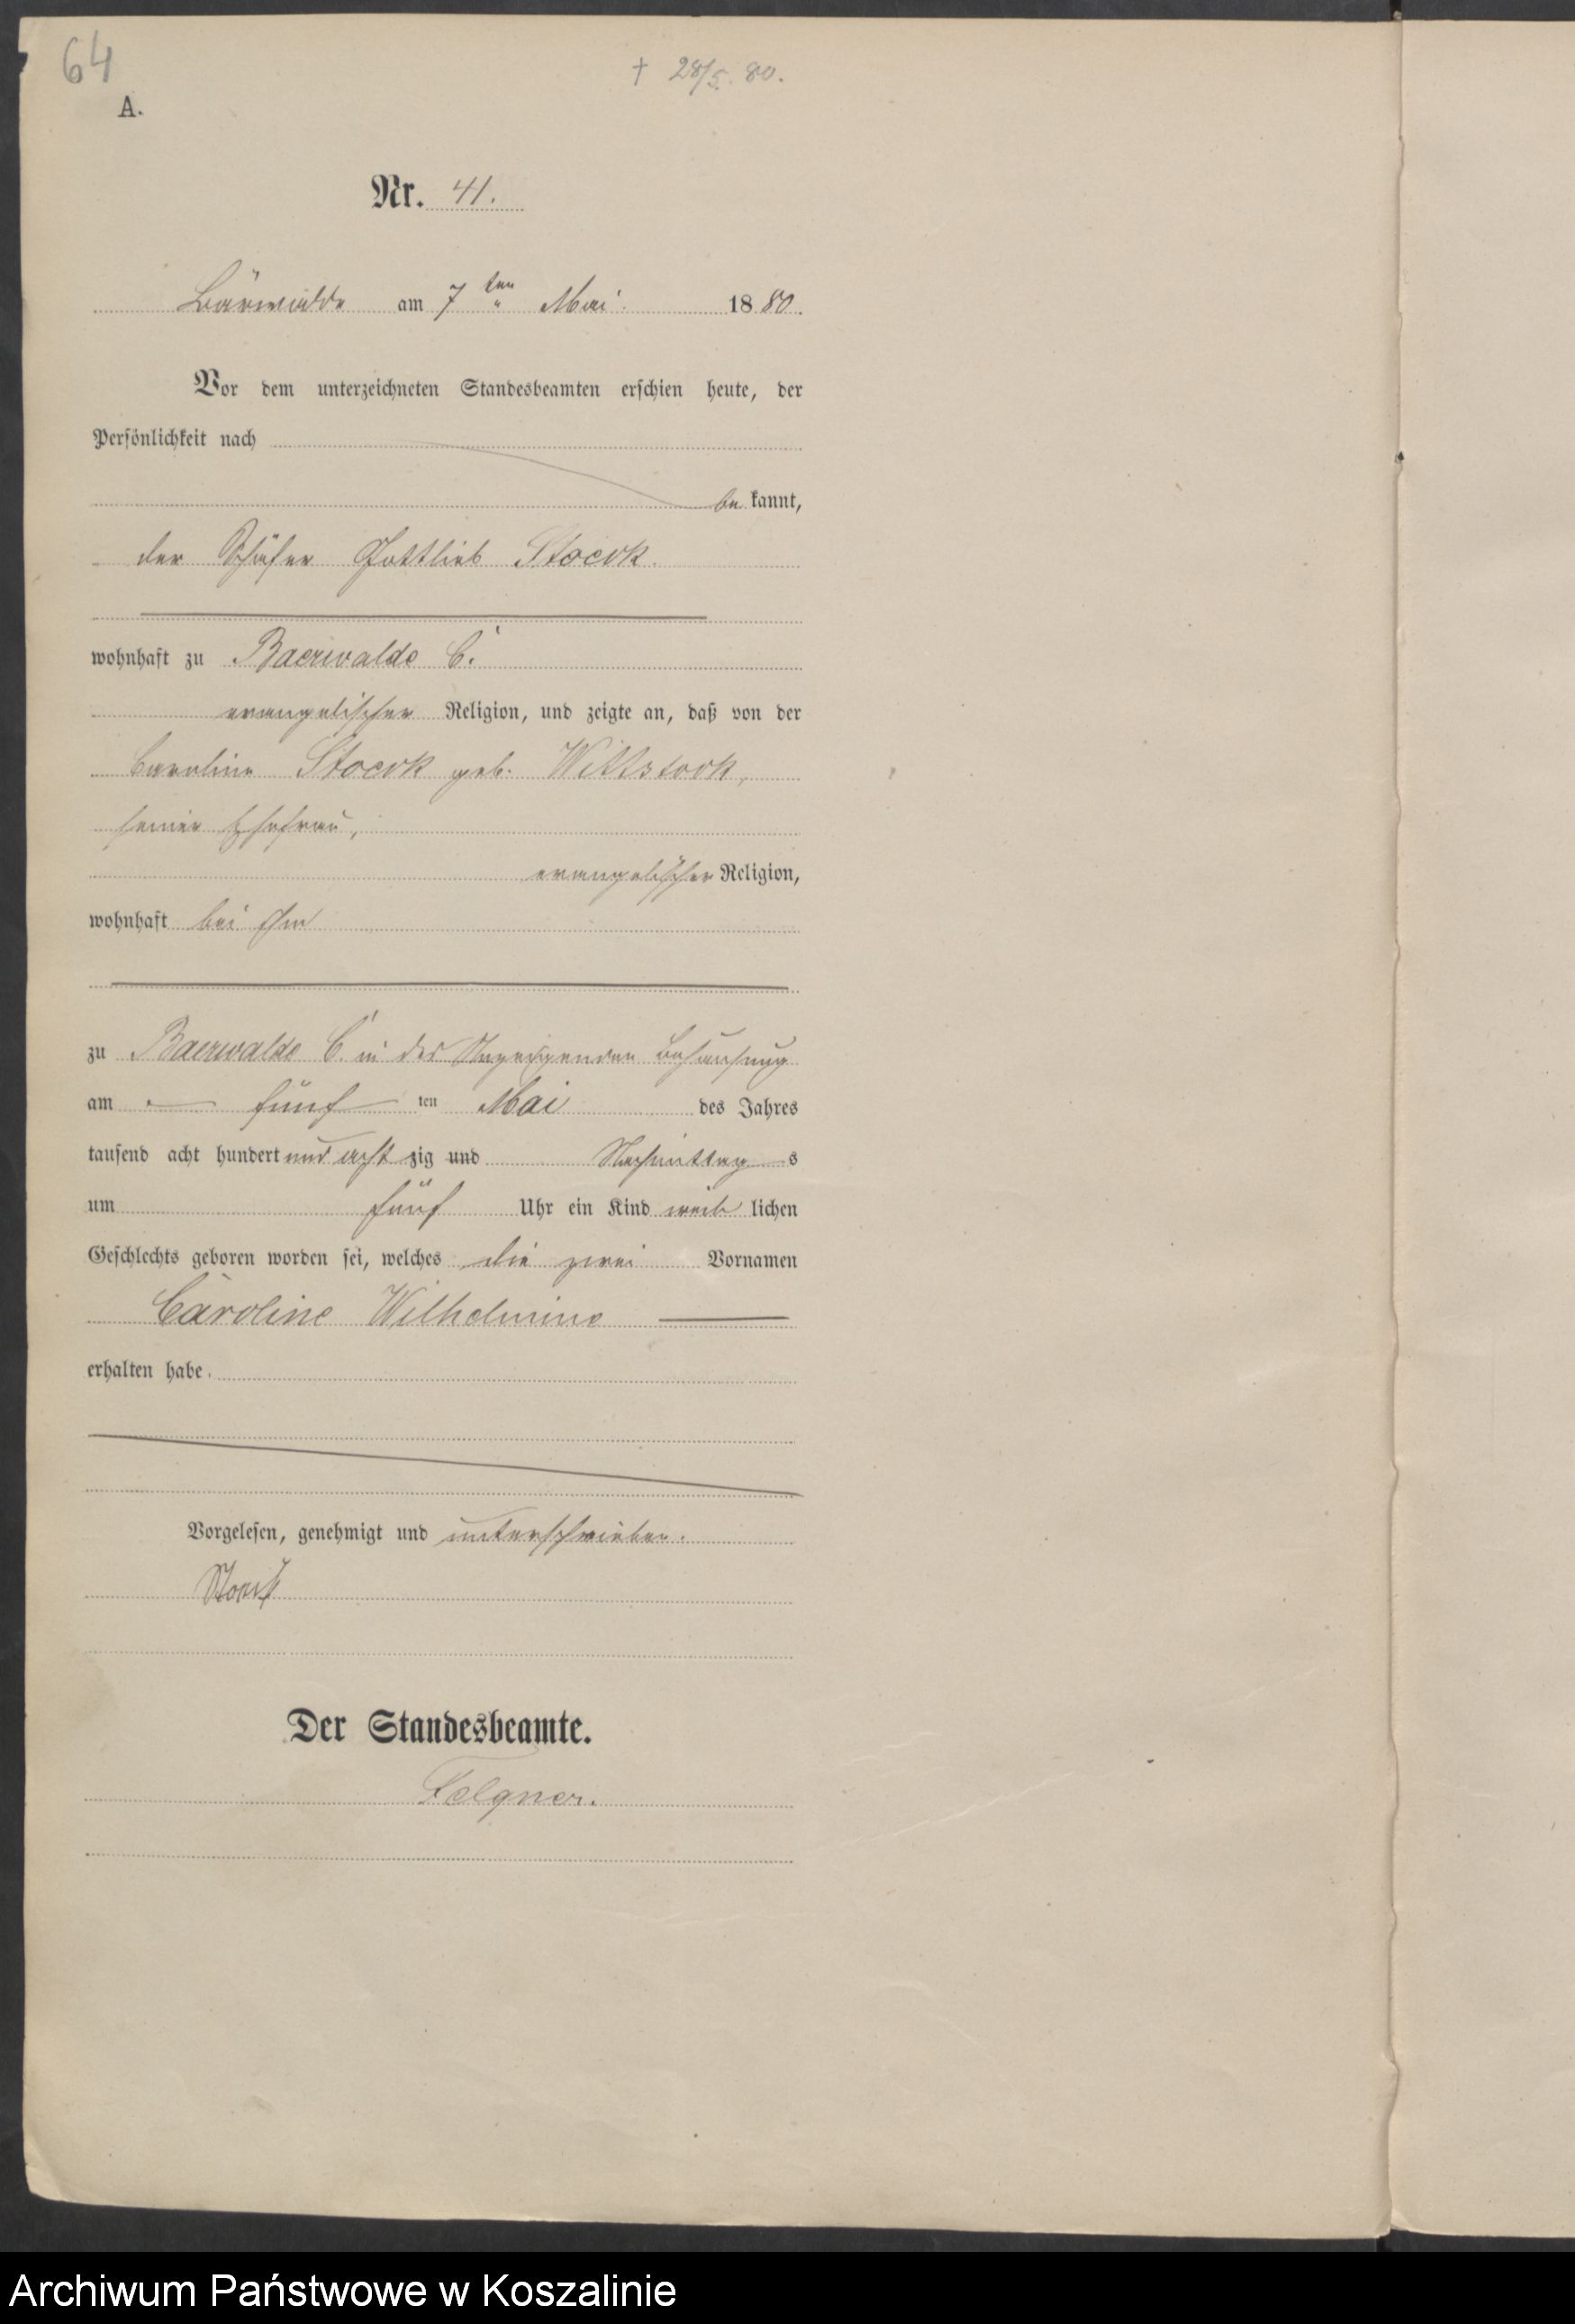 64
† 28/5. 80.
A.
Nr. 41.
Bärwalde am 7ten Mai 1880.
Vor dem unterzeichneten Standesbeamten erschien heute, der
Persönlichkeit nach
bekannt,
der Schäfer Gottlieb Stoeck
wohnhaft zu Baerwalde C.
evangelischer Religion, und zeigte an, daß von der
Caroline Stoeck geb. Wittstock,
seiner Ehefrau,
evangelischer Religion,
wohnhaft bei ihm
zu Baerwalde C. in des Anzeigenden Behausung
am fünf ten Mai des Jahres
tausend acht hundert und acht zig und Nachmittags
um fünf Uhr ein Kind weiblichen
Geschlechts geboren worden sei, welches die zwei Vornamen
Caroline Wilhelmine
erhalten habe.
Vorgelesen, genehmigt und unterschrieben.
Stoeck
Der Standesbeamte.
Felgner.
Archiwum Państwowe w Koszalinie